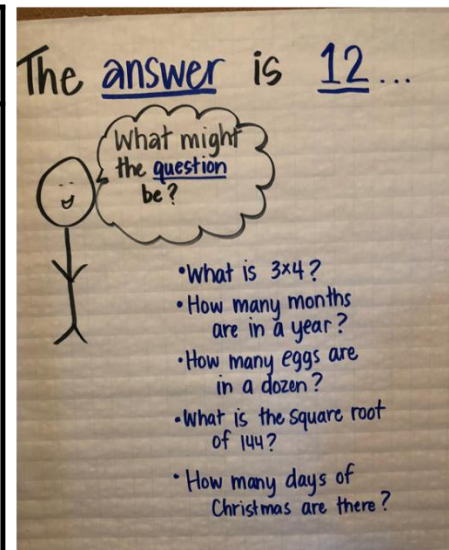 The answer is 12...
What might
the question
be?
•What is 3×4?
•How many months
are in a year?
•How many eggs are
in a dozen?
•What is the square root
of 144?
•How many days of
Christmas are there?